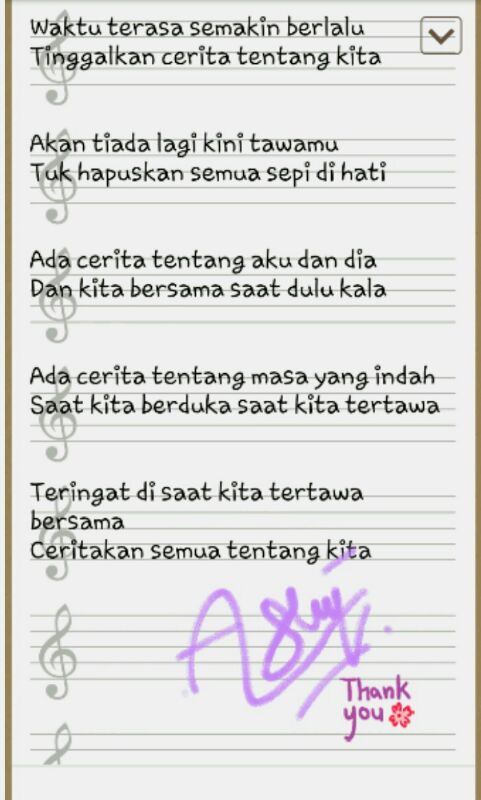 Waktu terasa semakin berlalu
Tinggalkan cerita tentang kita
Akan tiada lagi kini tawamu
Tuk hapuskan semua sepi di hati
Ada cerita tentang aku dan dia
Dan kita bersama saat dulu kala
Ada cerita tentang masa yang indah
Saat kita berduka saat kita tertawa
Teringat di saat kita tertawa
bersama
Ceritakan semua tentang kita
Thank
you